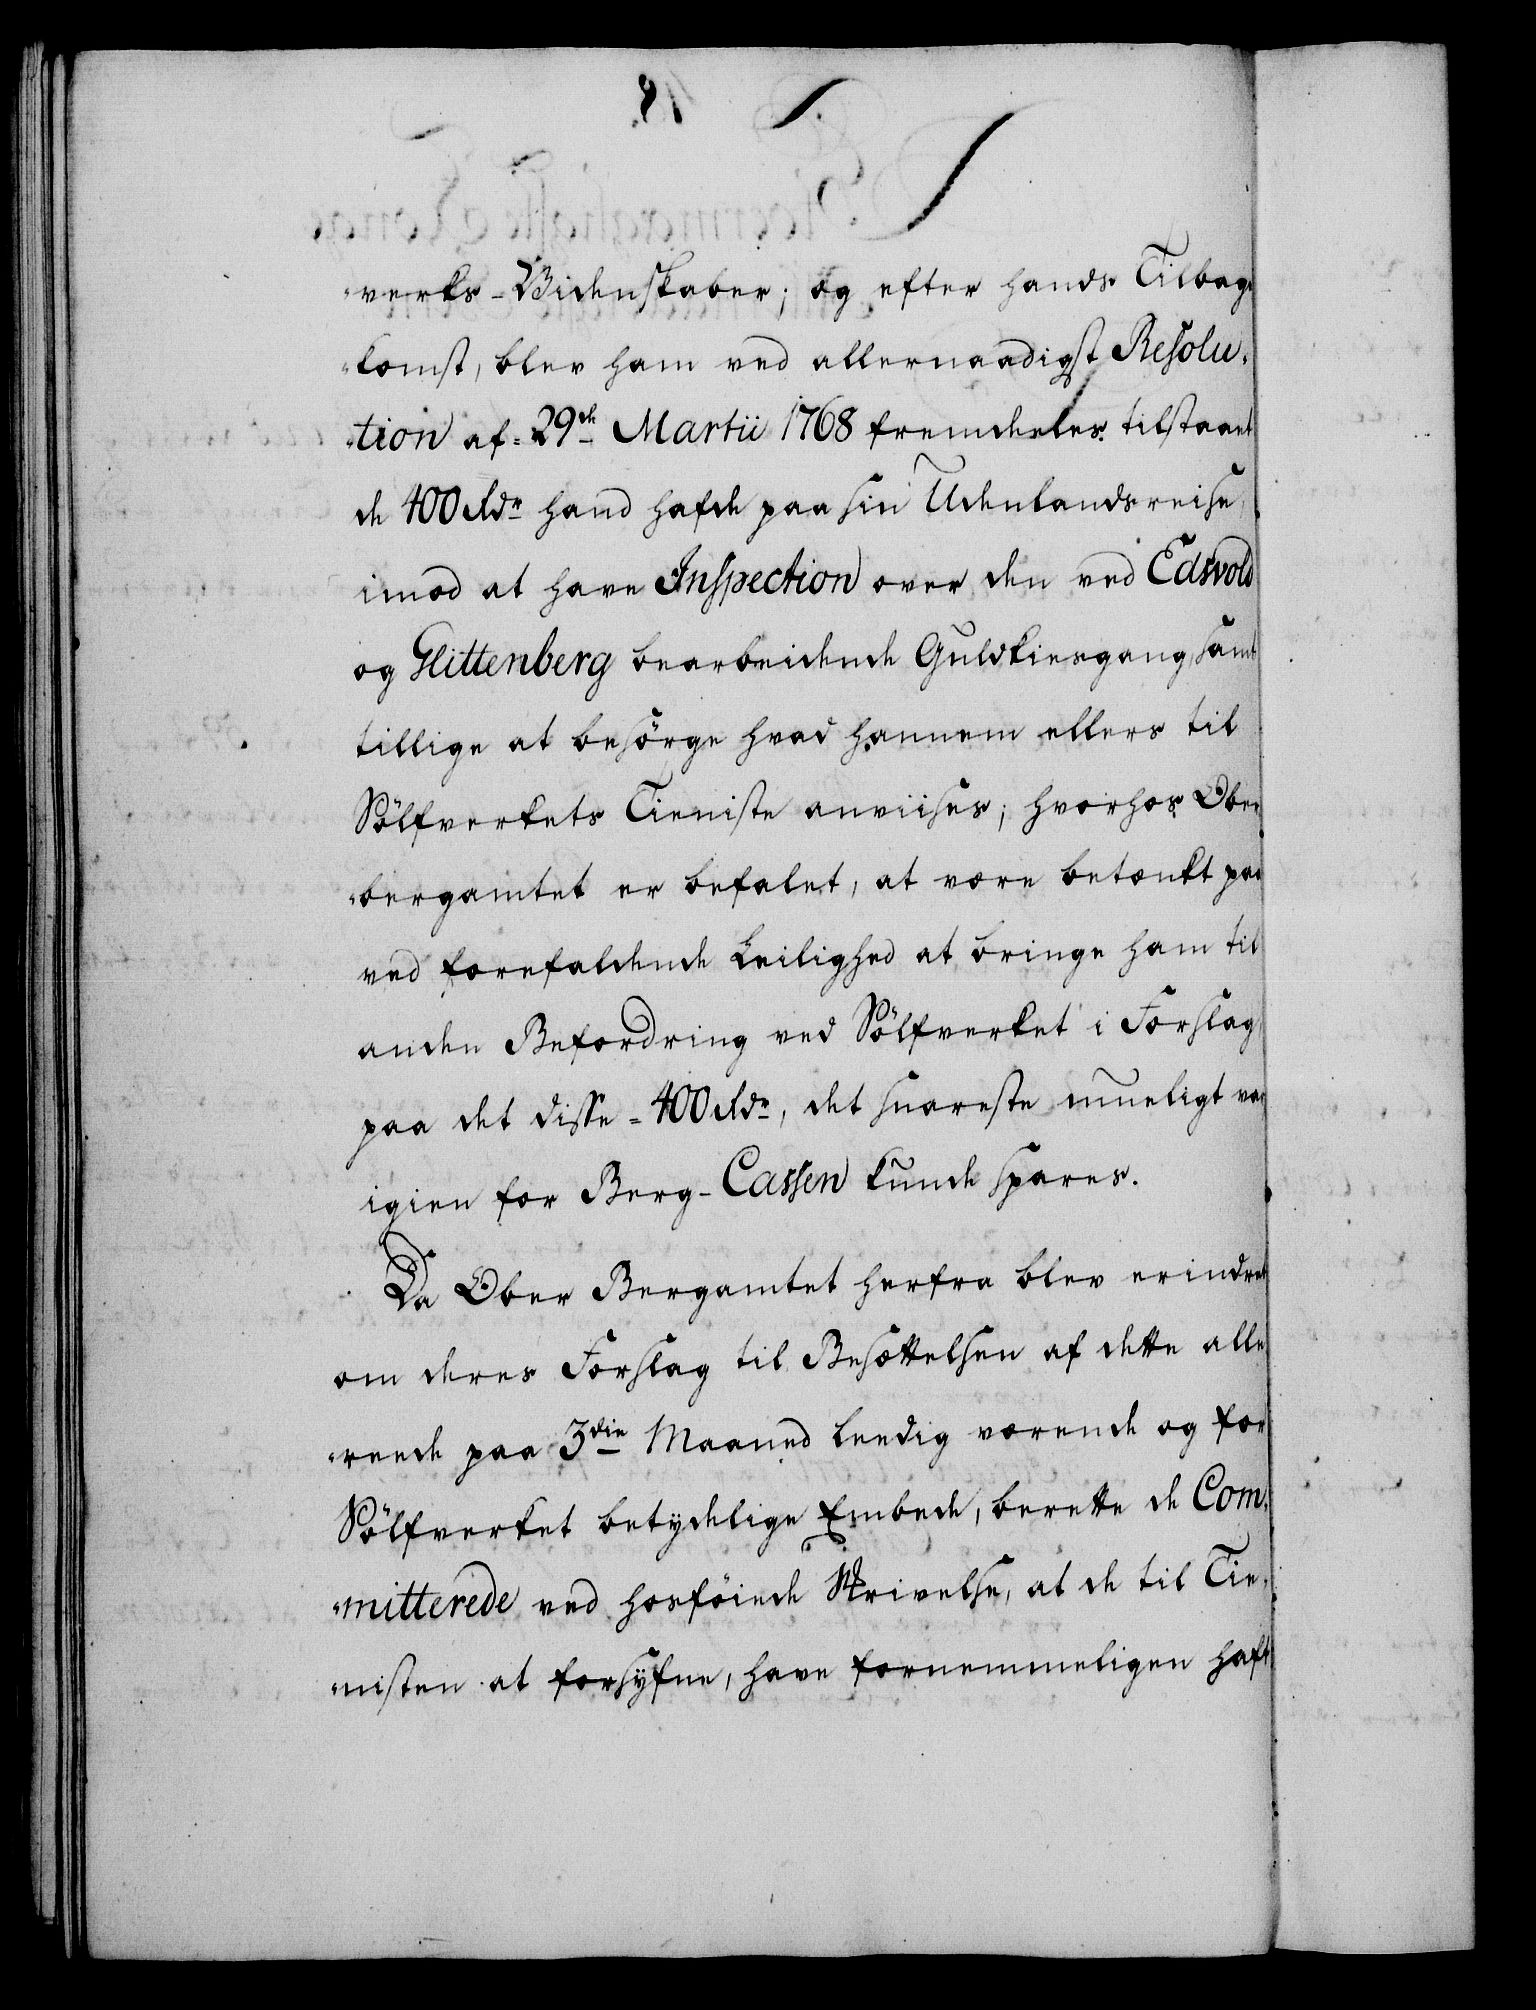 „verks-Videnskaber; og efter hands Tilbage
„komst, blev ham ved allernaadigst Resolu„
„tion af 29de Martii 1768 fremdeles tilstaaet
de 400 Rdr hand hafde paa sin Udenlandsreise,
imod at have Inspection over den ved Edsvold
og Glittenberg bearbeidende Guldkiesgang, samt
tillige at besörge hvad hannem ellers til
Sölfverkets Tieniste anviises; hvorhos Ober
„bergamtet er befalet, at være betænkt paa
ved forefaldende Leilighed at bringe ham til
anden Befordring ved Sölfverket i Forslag,
paa det disse 400 Rdr, det snareste mueligt var
igien for Berg-Cassen kunde spares.
Da Ober Bergamtet herfra blev erindret
om deres Forslag til Besættelsen af dette alle
„reede paa 3die Maaned leedig værende og for
Sölfverket betydelige Embede, berette de Com„
„mitterede ved hosföiede Skrivelse, at de til Tie„
„nisten at forsyfne, have fornemmeligen haft